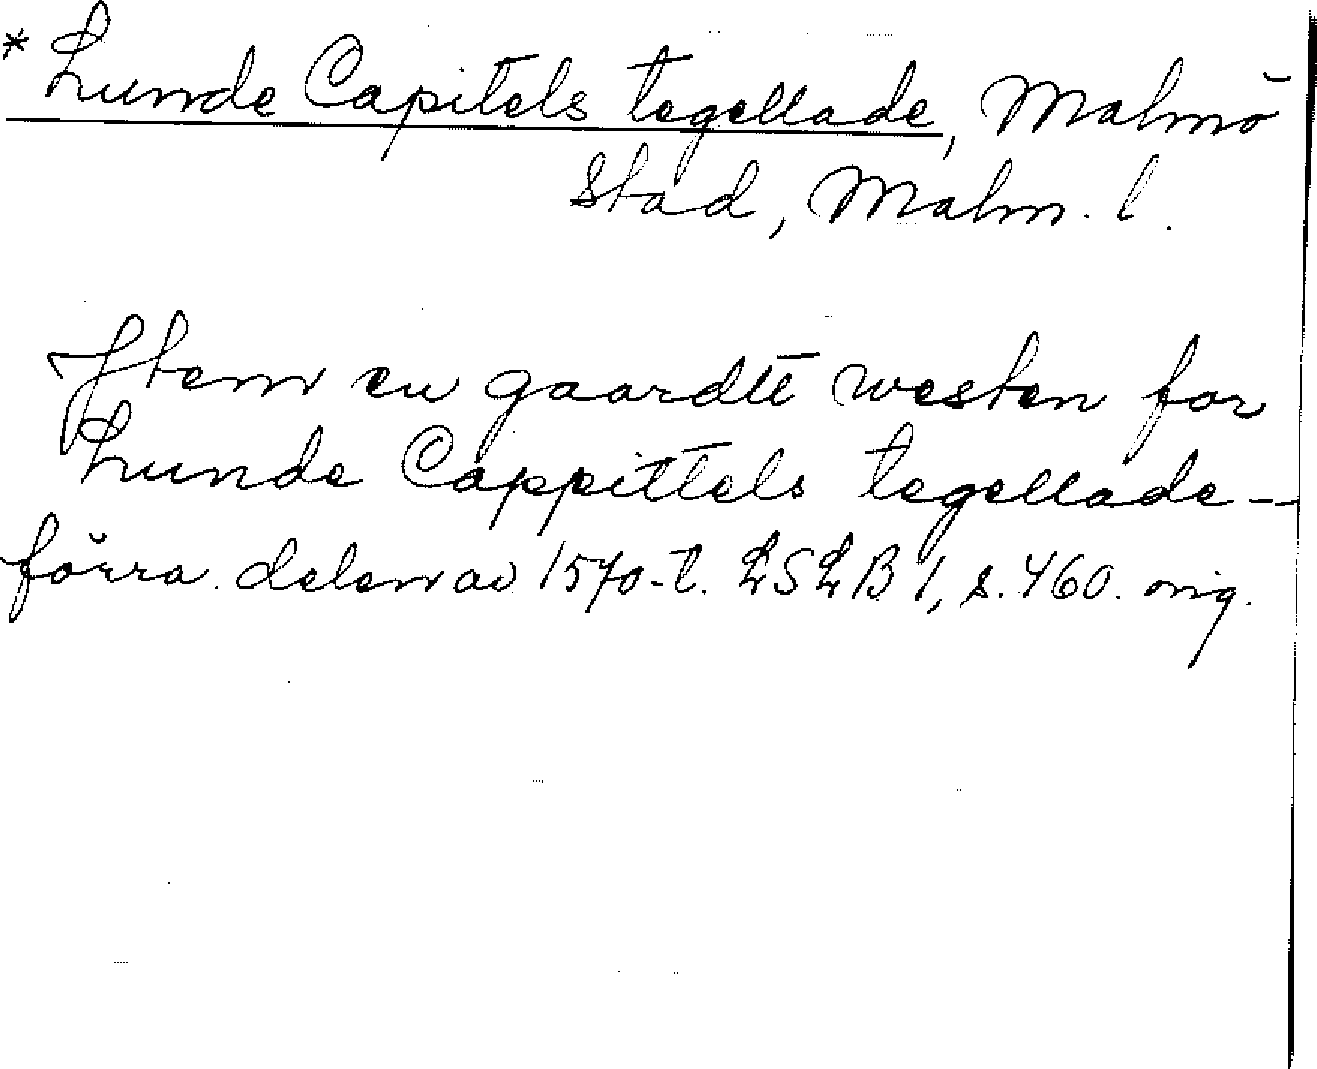 * Lunde Capitels tegellade, Malmö
stad, Malm. l.
Item en gaardtt westen for
Lunde Cappittels tegellade -
förra delen av 1570-t. LSLB 1, s. 460. orig.